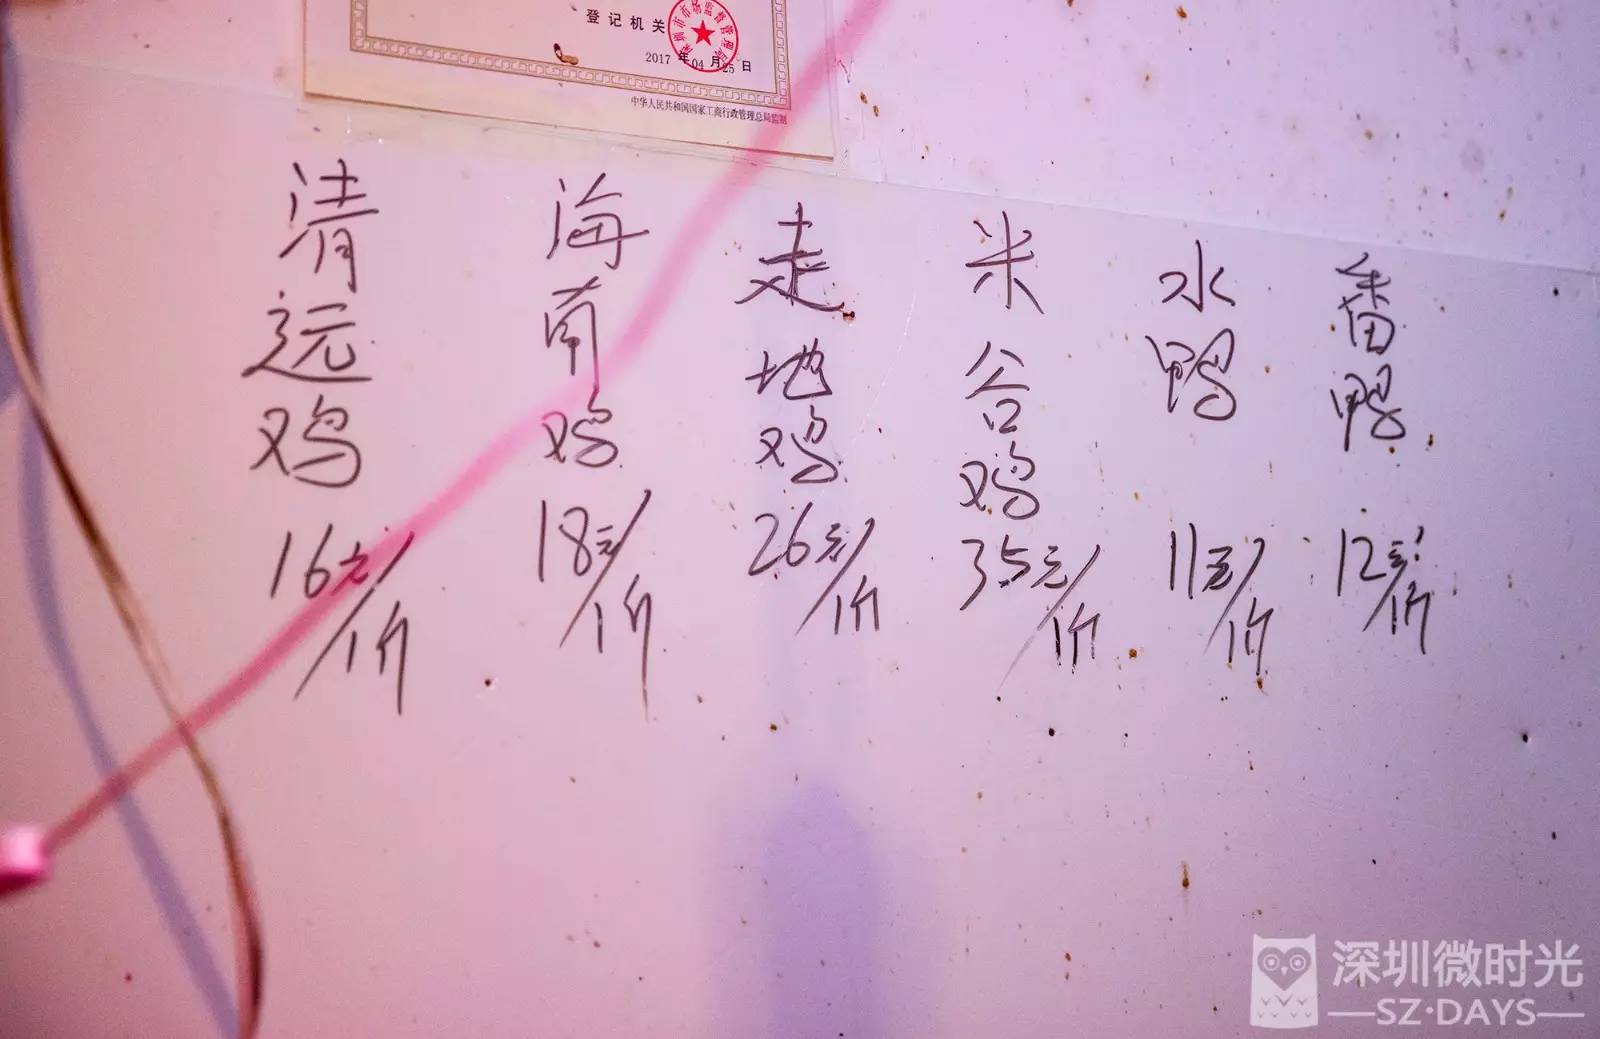 登记机关
深圳市市场监督管理局
2017 年 04 月 25 日
中华人民共和国国家工商行政管理总局监制
清远鸡 16元/价
海南鸡 18元/价
走地鸡 26元/价
米谷鸡 35元/价
水鸭 11元/价
番鸭 12元/价
深圳微时光
SZ·DAYS